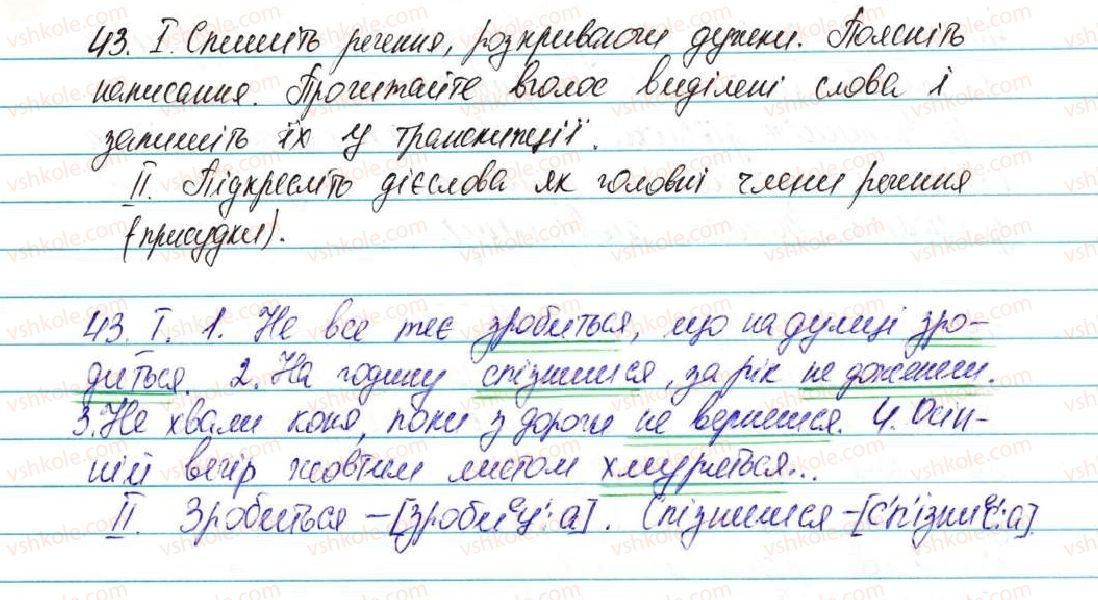 43. І. Спишіть речення, розкриваючи дужки. Поясніть
написання. Прочитайте вголос виділені слова і
запишіть їх у транскипції.
ІІ. Підкресліть дієслова як головні члени речення
(присудки).
43. І. 1. Не все теє зробиться, що на думці зро-
диться. 2. На годину спізнишся, за рік не доженеш.
3. Не хвали коня, поки з дороги не вернешся. 4. Осін-
ній вечір жовтим листом хмуриться...
ІІ. Зробиться – [зробиᵉц':а]. Спізнишся – [с'п'ізниᵉс':а].